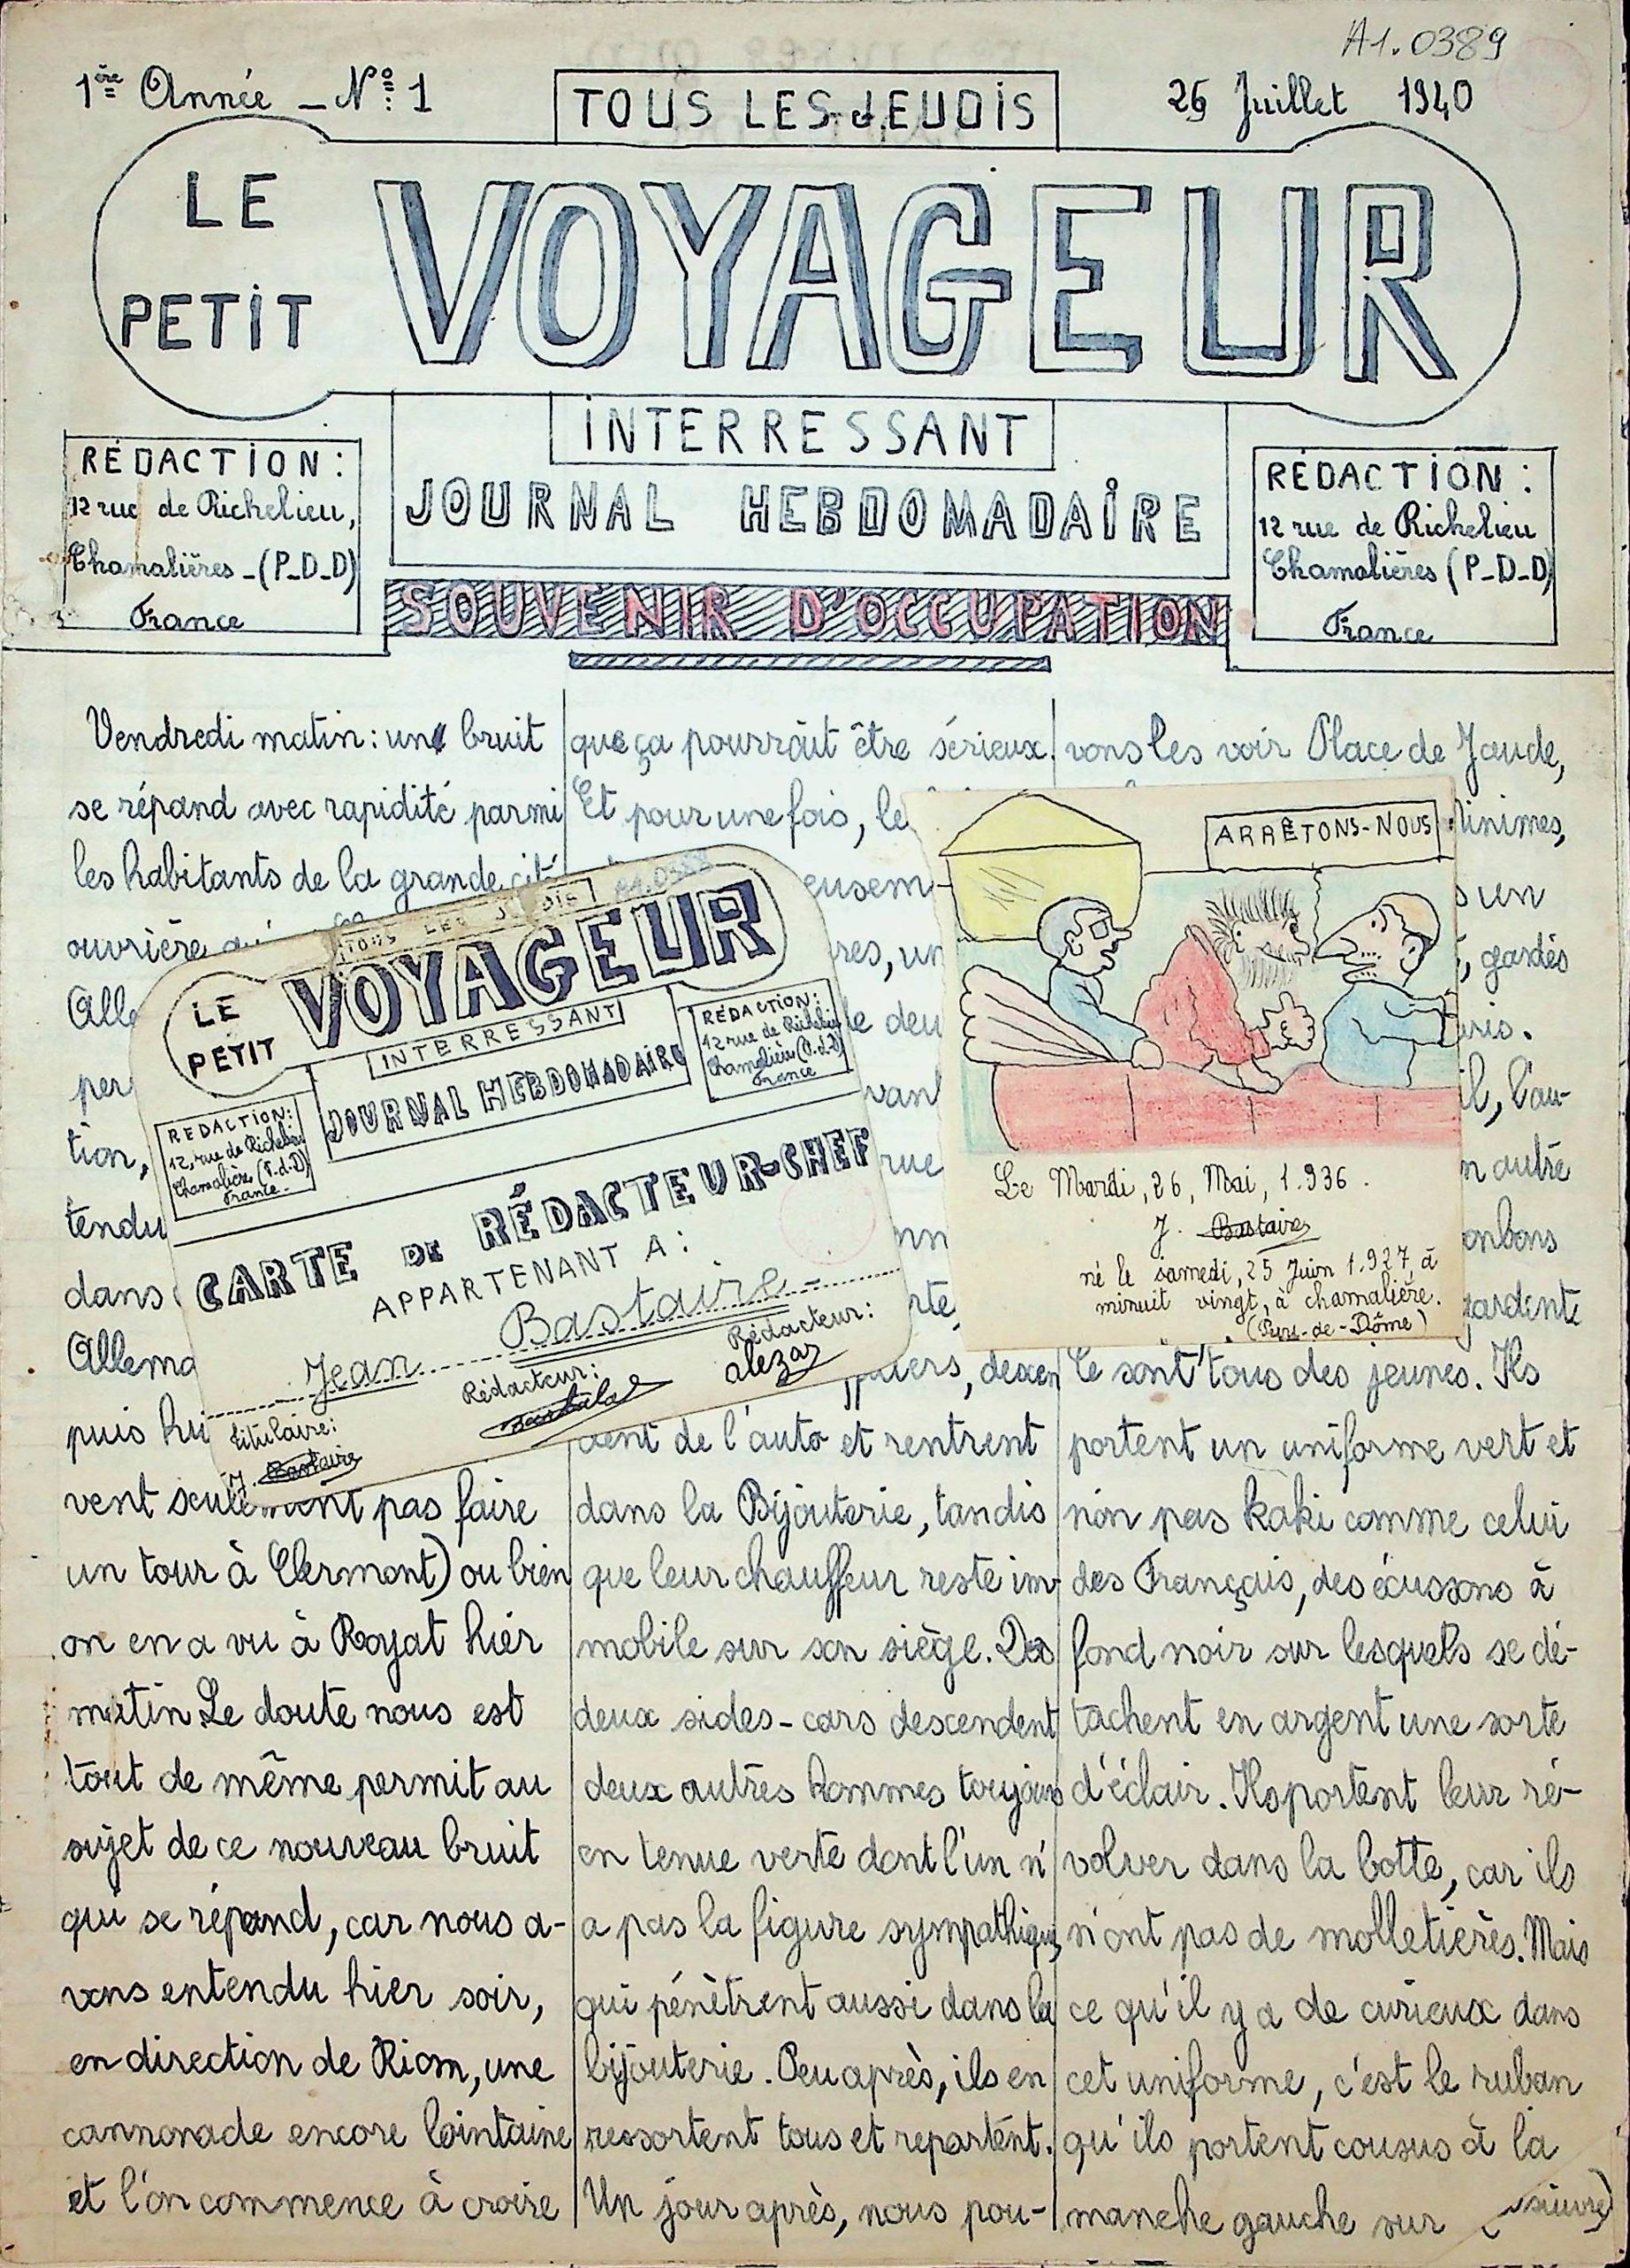 A1.0389
1ère Année - N°: 1
TOUS LES JEUDIS
25 Juillet 1940
LE
PETIT
VOYAGEUR
INTERRESSANT
JOURNAL HEBDOMADAIRE
RÉDACTION:
12 rue de Richelieu,
Chamalières - (P-D-D)
France
RÉDACTION:
12 rue de Richelieu
Chamalières (P-D-D)
France
SOUVENIR D'OCCUPATION
Vendredi matin: un bruit
se répand avec rapidité parmi
les habitants de la grande cité
ouvrière
Alle
per
tion,
tendu
dans
Allema
puis hui
vent seulement pas faire
un tour à Clermont) ou bien
on en a vu à Royat hier
matin. Le doute nous est
tout de même permit au
sujet de ce nouveau bruit
qui se répand, car nous a-
vons entendu hier soir,
en direction de Riom, une
cannonade encore lointaine
et l'on commence à croire
que ça pourrait être sérieux.
Et pour une fois, le
eusem-
res, un
le deu
vant
rue
rte,
descen
dent de l'auto et rentrent
dans la Bijouterie, tandis
que leur chauffeur reste im-
mobile sur son siège. Des
deux sides-cars descendent
deux autres hommes toujours
en tenue verte dont l'un n'
a pas la figure sympathique,
qui pénètrent aussi dans la
bijouterie. Peu après, ils en
ressortent tous et repartent.
Un jour après, nous pou-
vons les voir Place de Jaude,
inimes,
s un
, gardés
il, l'au-
n autre
onbons
gardent
Ce sont tous des jeunes. Ils
portent un uniforme vert et
non pas kaki comme celui
des Français, des écussons à
fond noir sur lesquels se dé-
tachent en argent une sorte
d'éclair. Ils portent leur ré-
volver dans la botte, car ils
n'ont pas de molletières. Mais
ce qu'il y a de curieux dans
cet uniforme, c'est le ruban
qu'ils portent cousus à la
manche gauche sur
(à suivre)
TOUS LES JEUDIS
A1.0388
LE
PETIT
VOYAGEUR
INTERRESSANT
JOURNAL HEBDOMADAIRE
REDACTION:
12, rue de Richelieu
Chamalière (P.d.D)
France.
REDACTION:
12 rue de Richelieu
Chamalière (P.d.D)
France
CARTE DE RÉDACTEUR-CHEF
APPARTENANT A:
Jean Bastaire
titulaire:
J. Bastaire
Rédacteur:
Rédacteur:
alezar
ARRÊTONS-NOUS
Le Mardi, 26, Mai, 1.936.
J. Bastaire
né le samedi, 25 Juin 1.927, à
minuit vingt, à chamalière.
(Puy-de-Dôme)